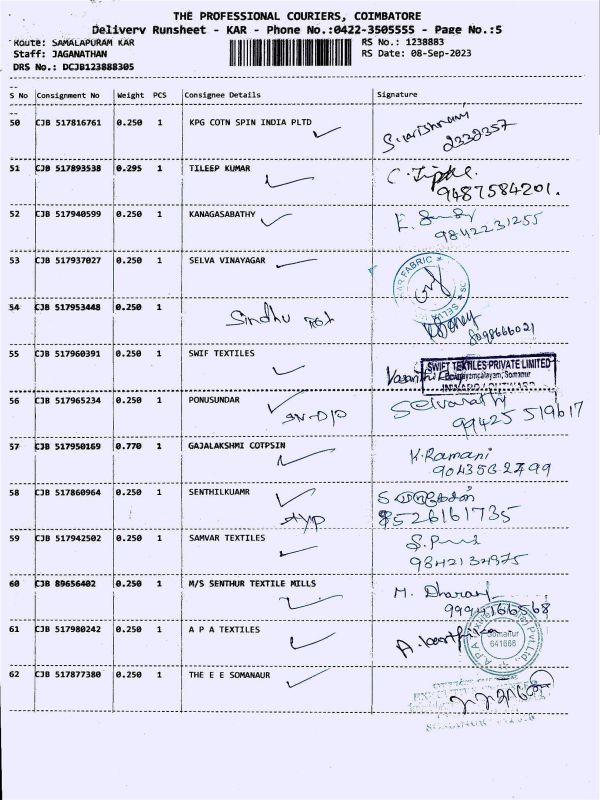 THE PROFESSIONAL COURIERS, COIMBATORE
Delivery Runsheet - KAR - Phone No.:0422-3505555 - Page No.:5
Route: SAMALAPURAM KAR RS No.: 1238883
Staff: JAGANATHAN RS Date: 08-Sep-2023
DRS No.: DCJB123888305
S No Consignment No Weight PCS Consignee Details Signature
50 CJB 517816761 0.250 1 KPG COTN SPIN INDIA PLTD
2332357
51 CJB 517893538 0.295 1 TILEEP KUMAR
9487584201.
52 CJB 517940599 0.250 1 KANAGASABATHY
9842231255
53 CJB 517937027 0.250 1 SELVA VINAYAGAR
54 CJB 517953448 0.250 1 Sindhu
8098666021
55 CJB 517960391 0.250 1 SWIF TEXTILES
SWIFT TEXTILES PRIVATE LIMITED
Somanur
56 CJB 517965234 0.250 1 PONUSUNDAR
99425 519617
57 CJB 517950169 0.770 1 GAJALAKSHMI COTPSIN K. Ramani
9043562499
58 CJB 517860964 0.250 1 SENTHILKUAMR
8526161735
59 CJB 517942502 0.250 1 SAMVAR TEXTILES
9842134975
60 CJB 89656402 0.250 1 M/S SENTHUR TEXTILE MILLS M. Dharani
9994166568
61 CJB 517980242 0.250 1 A P A TEXTILES A. karthika
Somanur
641668
62 CJB 517877380 0.250 1 THE E E SOMANAUR